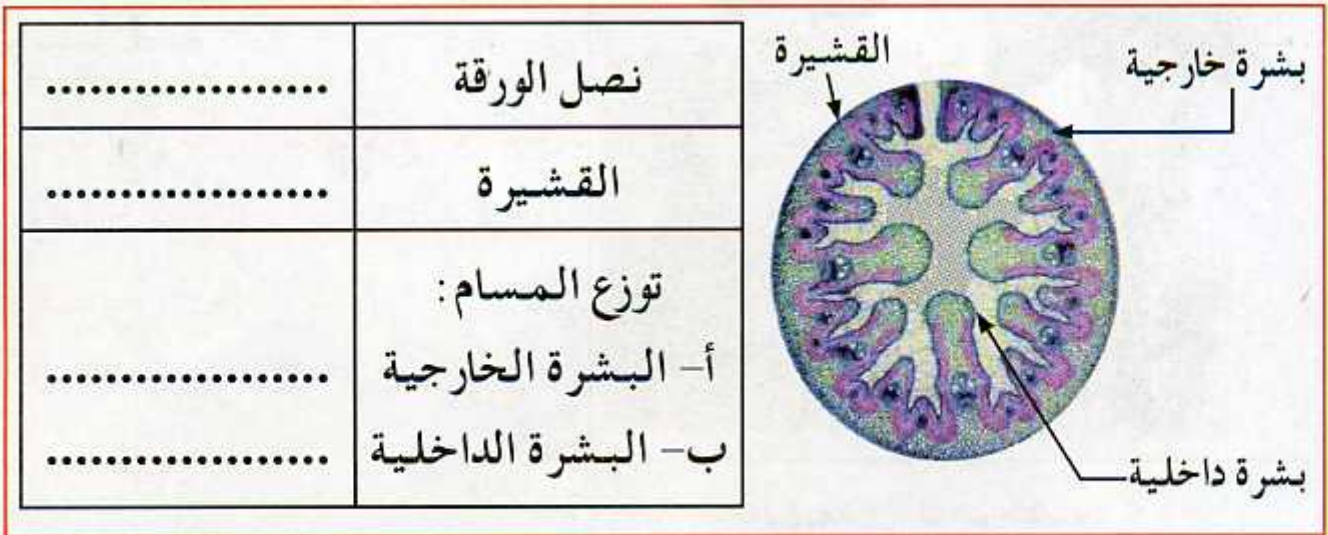 بشرة خارجية
القشيرة
بشرة داخلية
نصل الورقة ..................
القشيرة ..................
توزع المسام:
أ- البشرة الخارجية ..................
ب- البشرة الداخلية ..................